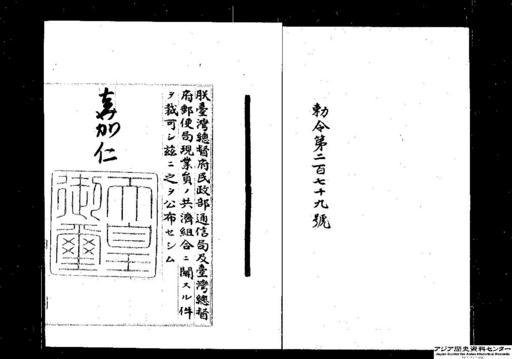 勅令第二百七十九號
朕臺灣總督府民政部通信局及臺灣總督
府郵便局現業員ノ共濟組合ニ關スル件
ヲ裁可シ茲ニ之ヲ公布セシム
嘉仁
天皇
御璽
アジア歴史資料センター
Japan Center for Asian Historical Records